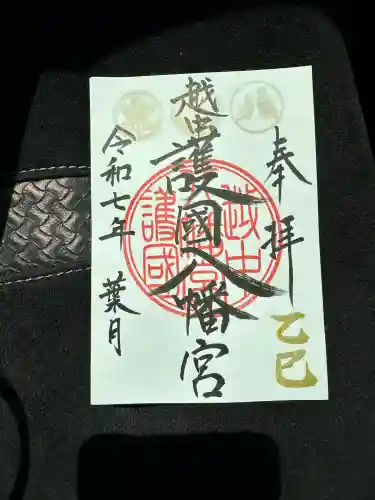 奉拝
乙巳
越中
護國八幡宮
令和七年
葉月
越中
護國